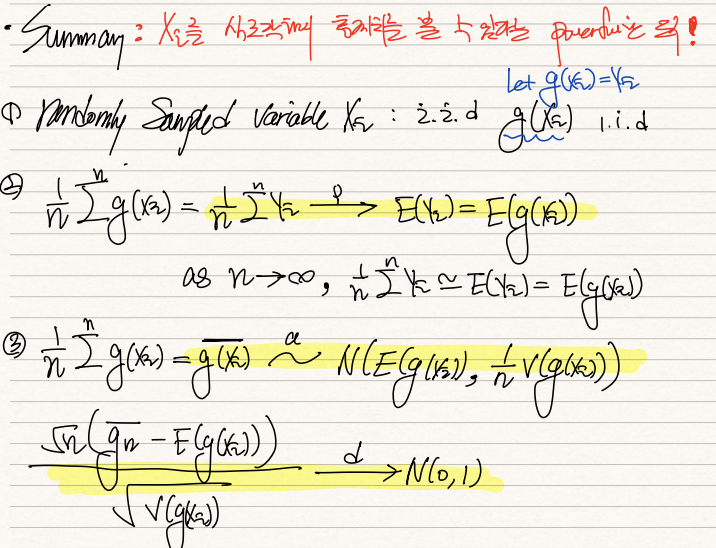 · Summary : Xᵢ를 시그마해서 특지화를 볼 수 있다는 powerful한 듯!
Let g(Xᵢ)=Yᵢ
① randomly Sampled variable Xᵢ : i.i.d g(Xᵢ) i.i.d
② 1/n Σⁿ g(Xᵢ) = 1/n Σⁿ Yᵢ —p→ E(Yᵢ) = E(g(Xᵢ))
as n→∞, 1/n Σⁿ Yᵢ ≃ E(Yᵢ) = E(g(Xᵢ))
③ 1/n Σⁿ g(Xᵢ) = \overline{g(Xᵢ)} \overset{a}{\sim} N(E(g(Xᵢ)), 1/n V(g(Xᵢ)))
√n(\overline{gₙ} − E(g(Xᵢ))) / √V(g(Xᵢ)) —d→ N(0,1)